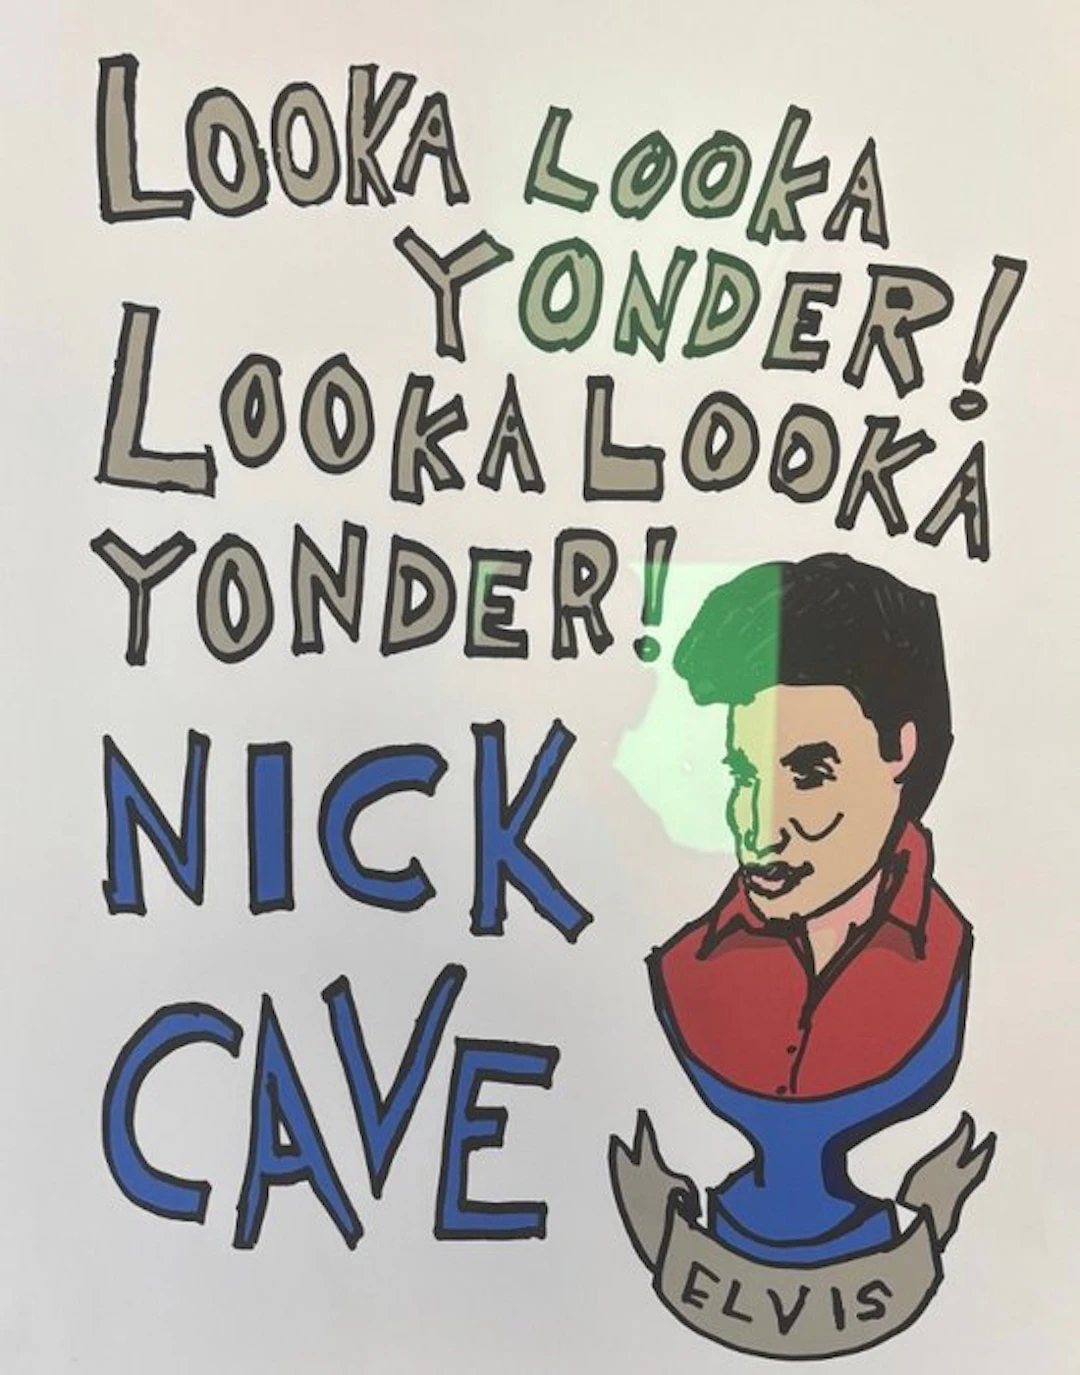 LOOKA LOOKA
YONDER!
LOOKA LOOKA
YONDER!
NICK
CAVE
ELVIS